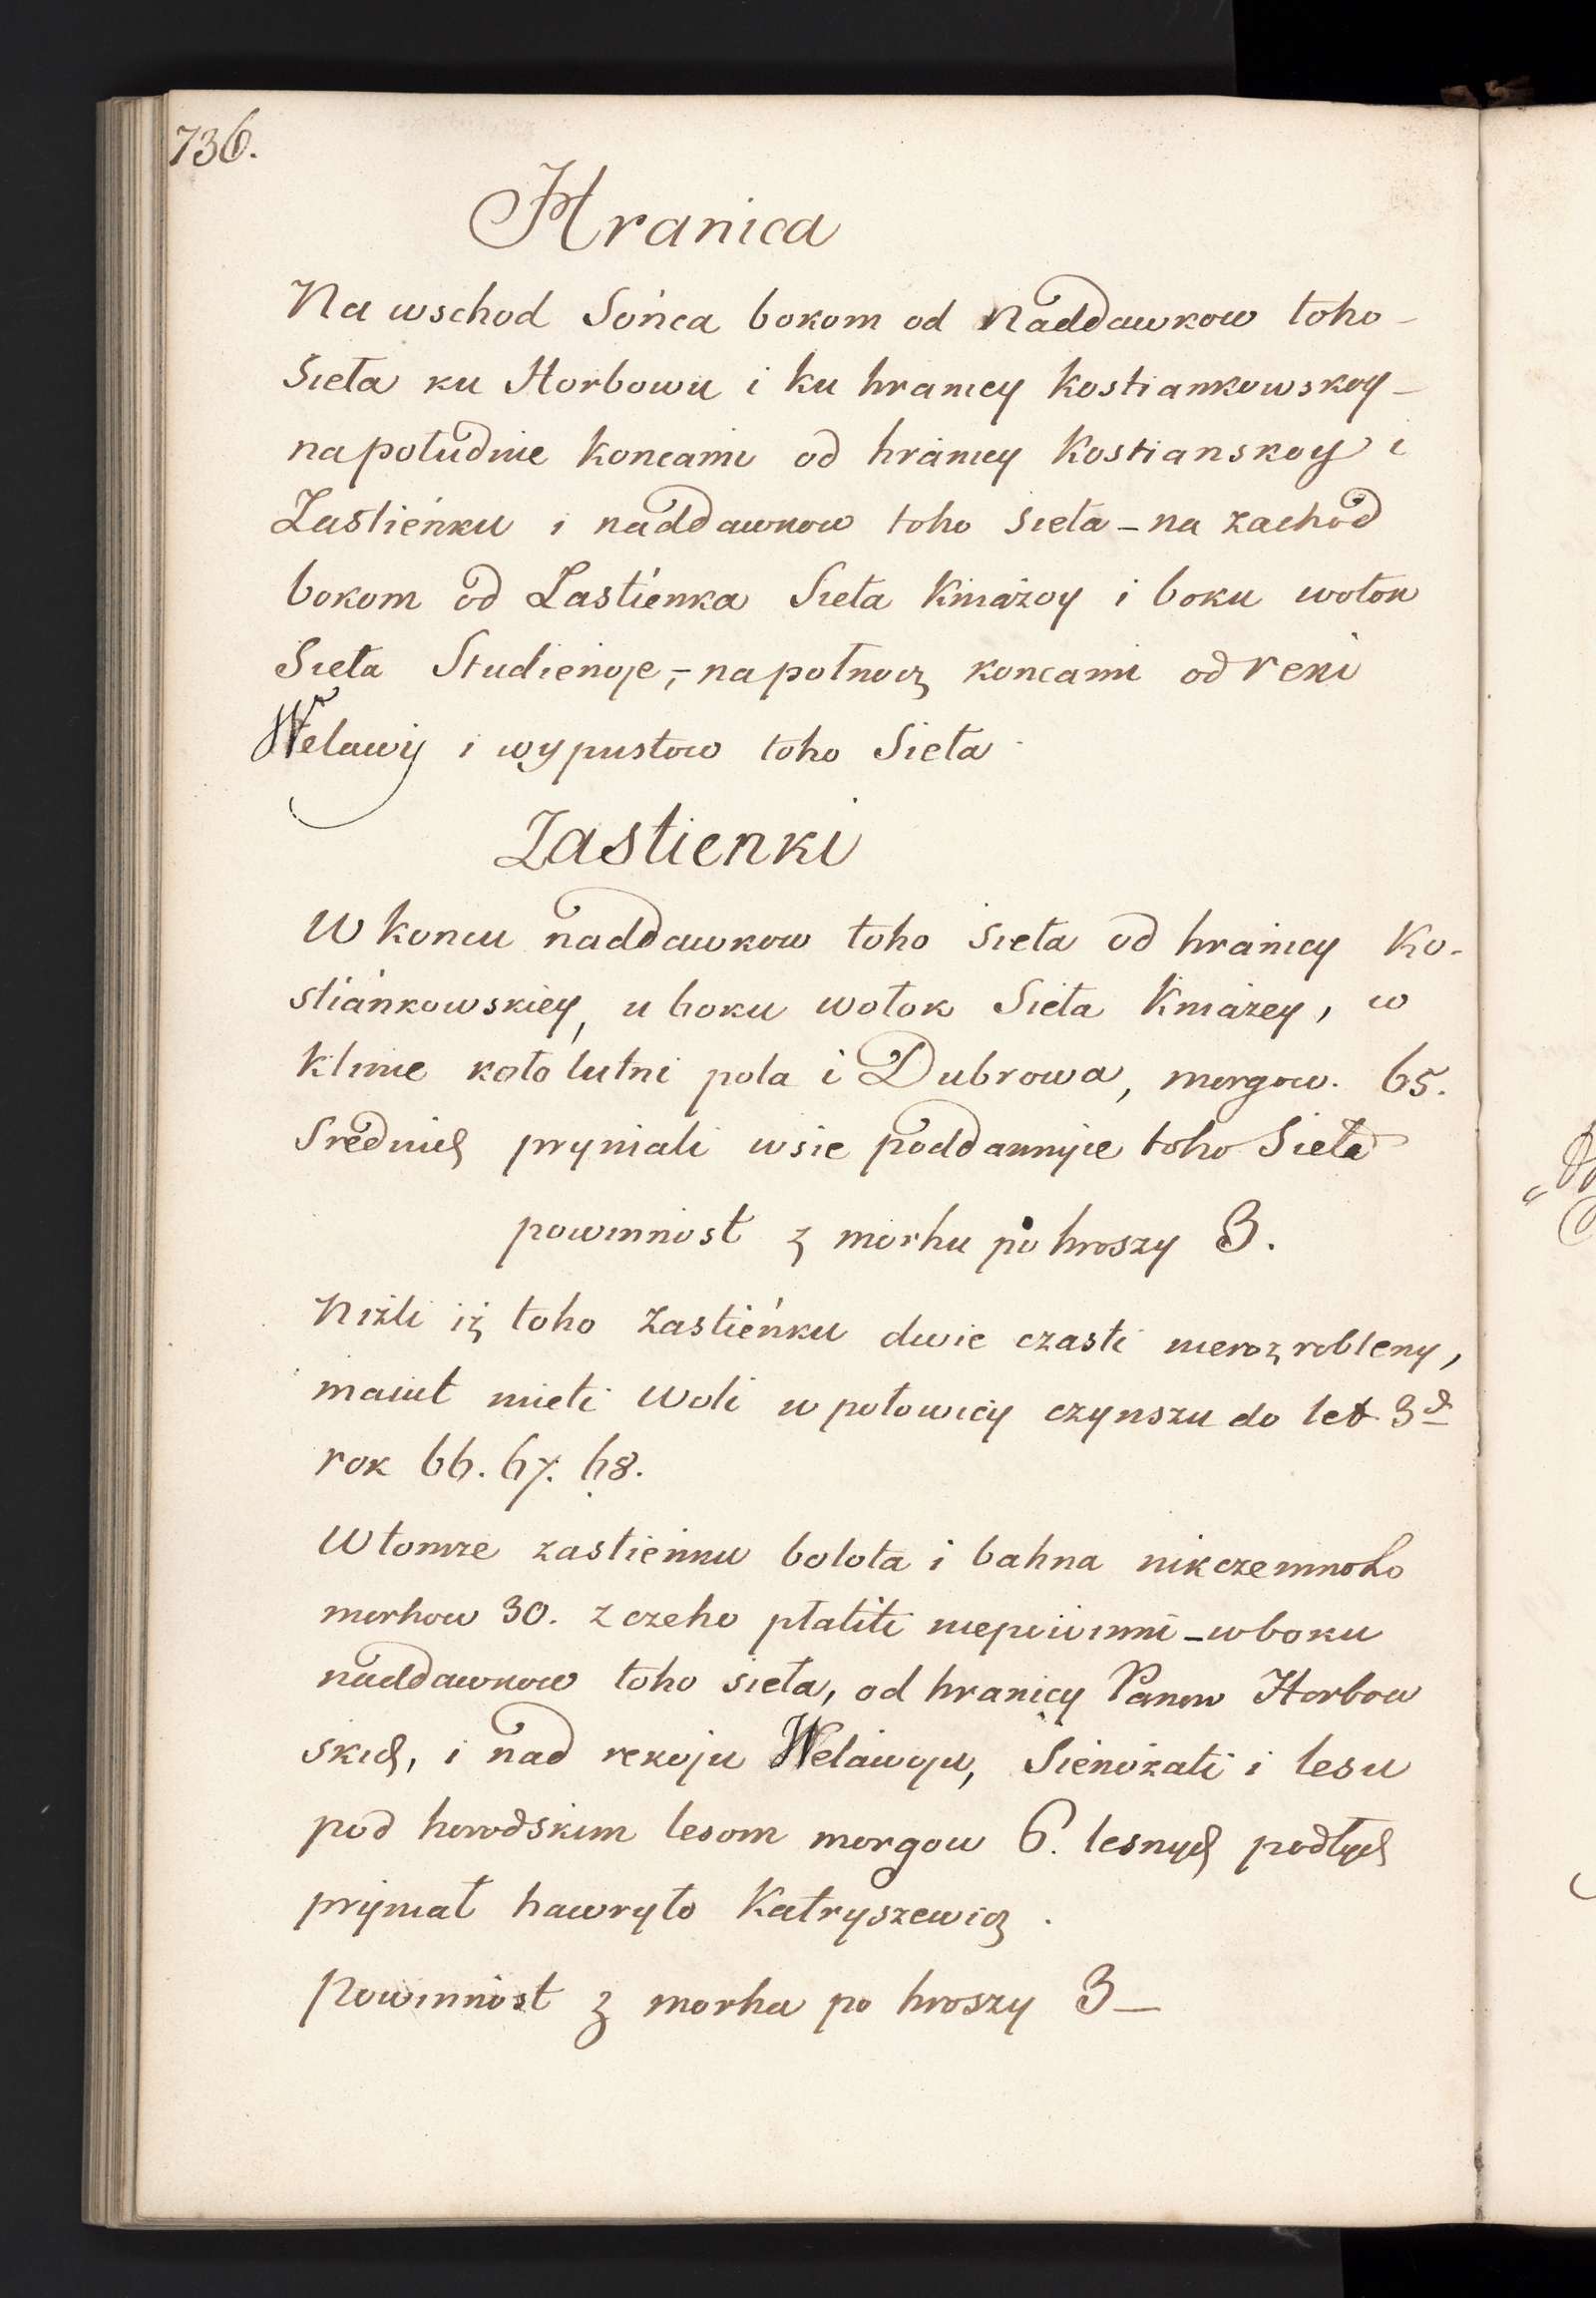 736.
Hranica
Na wschod Sońca bokom od Naddawkow toho –
Sieła ku Horbowu i ku hranicy Kostiankowskoy –
na południe koncami od hranicy Kostianskoy i
Zastieńku i naddawkow toho sieła – na zachod
bokom od Zastienka Sieła Kniażoy i boku wołok
Sieła Studienoje, – na połnocz koncami od reki
Welawy i wypustow toho Sieła
Zastienki
W koncu naddawkow toho sieła od hranicy Ko-
stiańkowskiey, u boku wołok Sieła Kniażey, w
klinie koło lutni pola i Dubrowa, morgow. 65.
Srednich pryniali wsie poddannyie toho Sieła
powinnost z morhu po hroszy 3.
Niżli iż toho Zastieńku dwie czasti nierozrobleny,
maiut mieti woli w połowicy czynszu do let 3ch
rok 66. 67. 68.
W tomże zastieńku bołota i bahna nikczemnoho
morhow 30. z czeho płatiti niepowinni – w boku
naddawkow toho sieła, od hranicy Panow Horbow
skich, i nad rekoju Weławoju, Sienożati i lesu
pod horodskim lesom morgow 6. lesnych podłych
pryniał hawryło Katryszewicz.
Powinnost z morha po hroszy 3 –